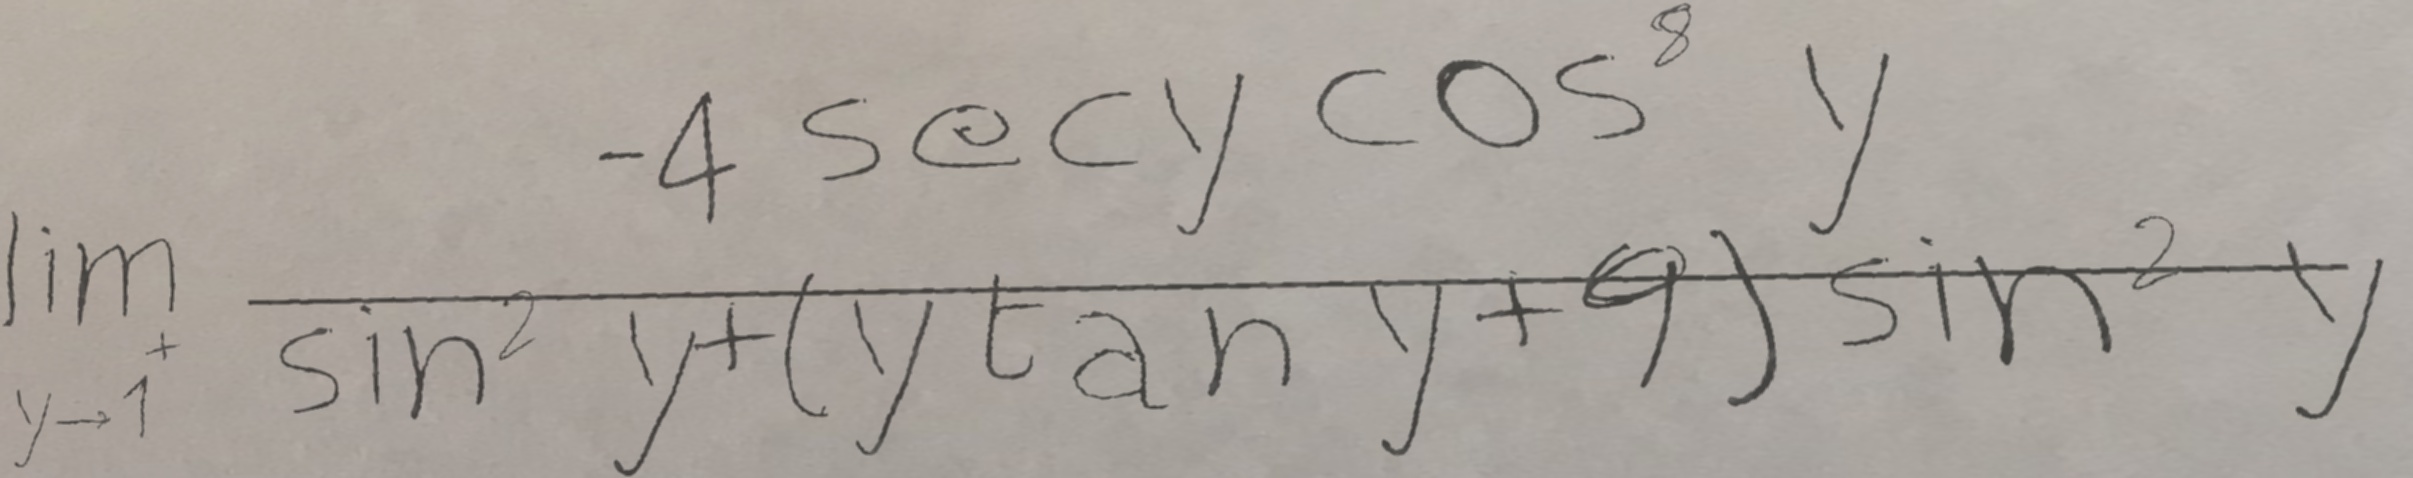 lim_{y→1^+} \frac{-4 sec y cos^8 y}{sin^2 y+(y tan y+9) sin^2 y}